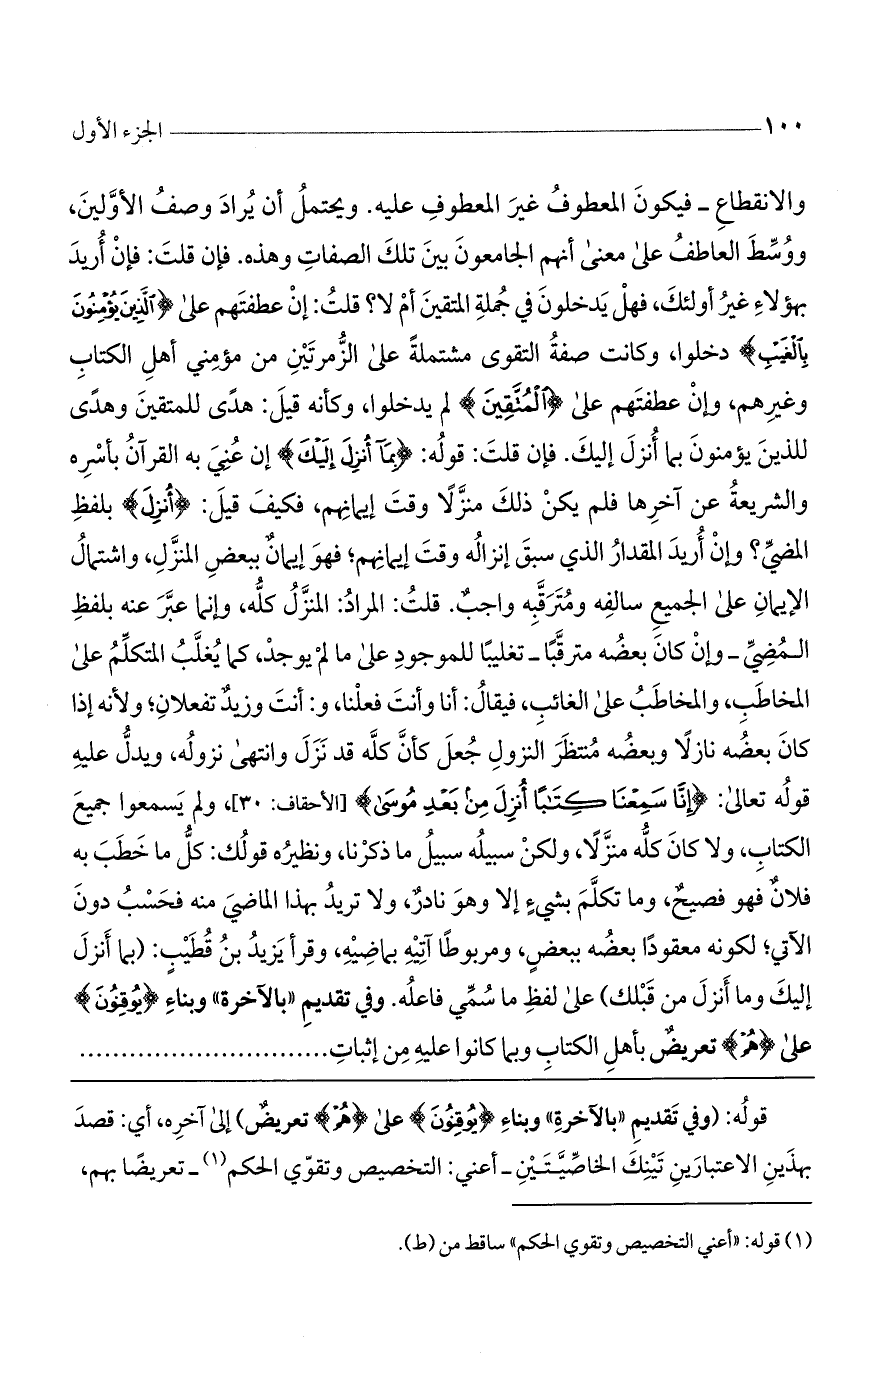 ١٠٠ الجزء الأول
والانقطاعِ ـ فيكونَ المعطوفُ غيرَ المعطوفِ عليه. ويحتملُ أن يُرادَ وصفُ الأوَّلينَ،
ووُسِّطَ العاطفُ علىٰ معنىٰ أنهم الجامعونَ بينَ تلكَ الصفاتِ وهذه. فإن قلتَ: فإنْ أُريدَ
بهؤلاءِ غيرُ أولئكَ، فهلْ يَدخلونَ في جُملةِ المتقينَ أمْ لا؟ قلتُ: إنْ عطفتَهم علىٰ ﴿ٱلَّذِينَ يُؤْمِنُونَ
بِٱلْغَيْبِ﴾ دخلوا، وكانت صفةُ التقوى مشتملةً علىٰ الزُّمرتَيْنِ من مؤمِني أهلِ الكتابِ
وغيرِهم، وإنْ عطفتَهم علىٰ ﴿ٱلْمُتَّقِينَ﴾ لم يدخلوا، وكأنه قيلَ: هدًى للمتقينَ وهدًى
للذينَ يؤمنونَ بما أُنزلَ إليكَ. فإن قلتَ: قولُه: ﴿بِمَآ أُنزِلَ إِلَيْكَ﴾ إن عُنِيَ به القرآنُ بأسْرِه
والشريعةُ عن آخرِها فلم يكنْ ذلكَ منزَّلًا وقتَ إيمانِهم، فكيفَ قيلَ: ﴿أُنزِلَ﴾ بلفظِ
المضيِّ؟ وإنْ أُريدَ المقدارُ الذي سبقَ إنزالُه وقتَ إيمانِهم؛ فهوَ إيمانٌ ببعضِ المنزَّلِ، واشتمالُ
الإيمانِ علىٰ الجميعِ سالفِه ومُتَرقَّبِه واجبٌ. قلتُ: المرادُ: المنزَّلُ كلُّه، وإنما عبَّرَ عنه بلفظِ
الـمُضِيِّ ـ وإنْ كان بعضُه مترقَّبًا ـ تغليبًا للموجودِ علىٰ ما لمْ يوجدْ، كما يُغلَّبُ المتكلِّمُ علىٰ
المخاطَبِ، والمخاطَبُ علىٰ الغائبِ، فيقالُ: أنا وأنتَ فعلْنا، و: أنتَ وزيدٌ تفعلانِ؛ ولأنه إذا
كانَ بعضُه نازلًا وبعضُه مُنتظَرَ النزولِ جُعلَ كأنَّ كلَّه قد نَزَلَ وانتهىٰ نزولُه، ويدلُّ عليهِ
قولُه تعالىٰ: ﴿إِنَّا سَمِعْنَا كِتَٰبًا أُنزِلَ مِنۢ بَعْدِ مُوسَىٰ﴾ [الأحقاف: ٣٠]، ولم يَسمعوا جميعَ
الكتابِ، ولا كانَ كلُّه منزَّلًا، ولكنْ سبيلُه سبيلُ ما ذكرْنا، ونظيرُه قولُك: كلُّ ما خَطَبَ به
فلانٌ فهو فصيحٌ، وما تكلَّمَ بشيءٍ إلا وهوَ نادرٌ، ولا تريدُ بهذا الماضيَ منه فحَسْبُ دونَ
الآتي؛ لكونه معقودًا بعضُه ببعضٍ، ومربوطًا آتِيْهِ بماضِيْهِ، وقرأ يَزيدُ بنُ قُطَيْبٍ: (بما أَنزلَ
إليكَ وما أَنزلَ من قَبْلك) علىٰ لفظِ ما سُمِّي فاعلُه. وفي تقديمِ «بالآخرة» وبناءِ ﴿يُوقِنُونَ﴾
علىٰ ﴿هُمْ﴾ تعريضٌ بأهلِ الكتابِ وبما كانوا عليهِ مِن إثباتِ..............................
قولُه: (وفي تَقديمِ «بالآخرةِ» وبناءِ ﴿يُوقِنُونَ﴾ علىٰ ﴿هُمْ﴾ تعريضٌ) إلىٰ آخرِه، أي: قصدَ
بهذَينِ الاعتبارَينِ تَيْنِكَ الخاصِّيَّـتَـيْنِ ـ أعني: التخصيص وتقوّي الحكم(١) ـ تعريضًا بهم،
(١) قوله: «أعني التخصيص وتقوي الحكم» ساقط من (ط).